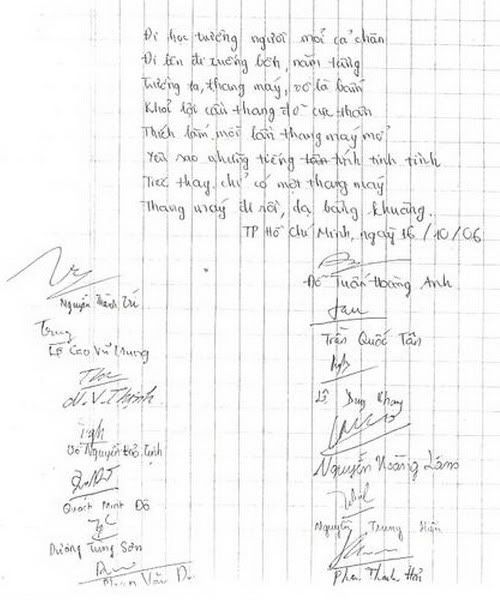 Đi học tưởng người mỏi cả chân
Đi lên đi xuống bốn, năm tầng
Tưởng ta, thang máy, vô là bấm
Khỏi lội cầu thang đỡ cực thân
Thích lắm, mỗi lần thang máy mở
Yêu sao những tiếng tính tinh tinh
Tiếc thay, chỉ có một thang máy
Thang máy đi rồi, dạ bâng khuâng.
TP Hồ Chí Minh, ngày 16/10/06
Nguyễn Thành Trí
Đỗ Tuấn Hoàng Anh
Trung
Lê Cao Vũ Trung
Trần Quốc Tân
N.V.Thịnh
Lê Duy Khang
Võ Nguyễn Tịnh
Nguyễn Hoàng Lâm
Quách Minh Đô
Nguyễn Trung Hiện
Dương Tùng Sơn
Phan Thành
Văn